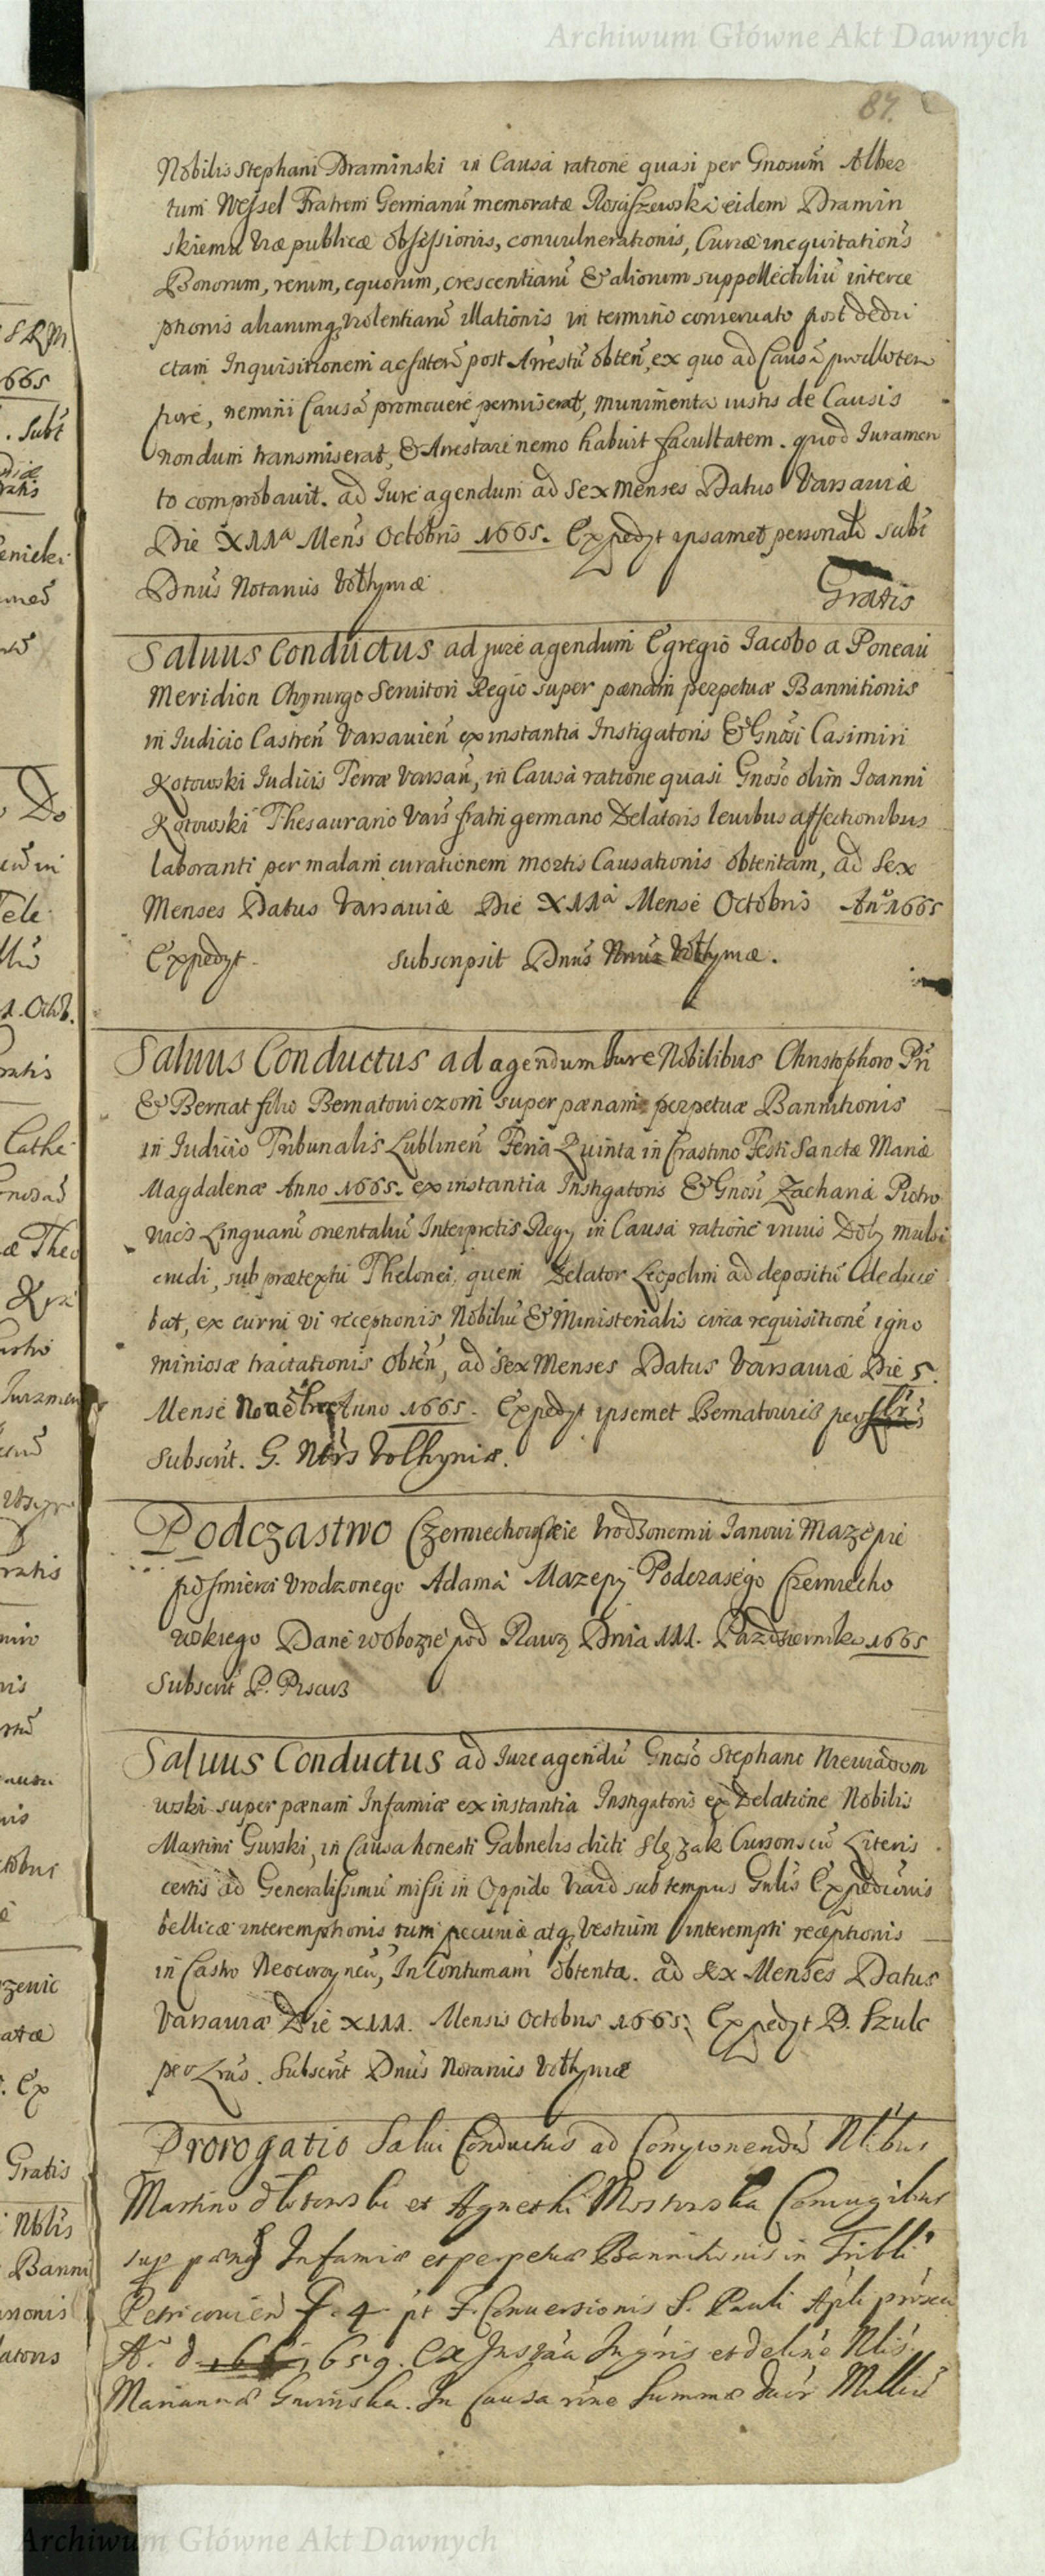 Archiwum Główne Akt Dawnych
87.
Nobilis Stephani Draminski in Causa ratione quasi per Gnosum Alber
tum Wessel Fratrem Germanū memoratæ Rosciszewska eidem Dramin
skiemu viæ publicæ obsessionis, convulnerationis, Curiæ inequitationis
Bonorum, rerum, equorum, crescentiarū & aliorum suppollectiliū interce
ptionis aliarumq violentiarū illationis in termino conservato post dedu
ctam Inquisitionem ac post Arrestū obteñ, ex quo ad Causā
nemini Causā promovere permiserat, munimenta iustis de Causis
nondum transmiserat, & Arrestare nemo habuit facultatem. quod Iuramen
to comprobavit. ad Iure agendum ad Sex Menses Datus Varsaviæ
Die XIIa Mens Octobris 1665. Expedyt ipsamet personalr Subt
Dnus Notarius Volhyniæ
Gratis
Salvus Conductus ad jure agendum Egregio Iacobo a Poneau
Meridion Chyrurgo Servitori Regio super pœnam perpetuæ Bannitionis
in Iudicio Castreñ Varsavieñ ex instantia Instigatoris & Gnosi Casimiri
Kotowski Iudicis Terræ Varsav, in Causa ratione quasi Gnoso olim Ioanni
Kotowski Thesaurario Vars fratri germano Delatoris levibus affectionibus
laboranti per malam curationem mortis Causationis obtentam, ad Sex
Menses Datus Varsaviæ Die XIIa Mense Octobris Ano 1665
Expedyt. Subscripsit Dnus Nrius Volhyniæ.
Salvus Conductus ad agendum Iure Nobilibus Christophoro Pri
& Bernat filio Bernatowiczom super pœnam perpetuæ Bannitionis
in Iudicio Tribunalis Lublineñ Feria Quinta in Crastino Festi Sanctæ Mariæ
Magdalenæ Anno 1665. ex instantia Instigatoris & Gnosi Zachariā Piotro
vicz Linguarū orientaliū Interpretis Regy in Causa ratione unius Dolÿ mulsi
crudi, sub prætextu Thelonei, quem Delator Leopolim ad depositū deduce
bat, ex curru vi receptionis Nobiliū & Ministerialis circa requisitionē igno
miniosæ tractationis obteñ, ad Sex Menses Datus Varsaviæ Die 5.
Mense Novebr Anno 1665. Expedyt ipsemet Bernatowicz
Subscrit. G. Ntrs Volhyniæ.
Podczastwo Czerniechowskie Vrodzonemu Janowi Mazepie
po smierci Vrodzonego Adama Mazepy Podczasego Czerniecho
wskiego Dane w obozie pod Rawą Dnia 11. Pazdziernika 1665
Subscrit P. Pisarz
Salvus Conductus ad Iure agendū Gnoso Stephano Niewiadom
wski super pœnam Infamiæ ex instantia Instigatoris ex Delatione Nobilis
Martini Gurski, in Causa honesti Gabrielis dicti Slęzak Cursoris cū Literis
certis ad Generalissimū missi in Oppido Viazd sub tempus Gnlis Expeditionis
bellicæ interemptionis tum pecuniæ atq Vestium interempti receptionis
in Castro Neocorcyneñ, In Contumam obtenta. ad Sex Menses Datus
Varsaviæ Die XIII. Mensis Octobris 1665. Expedyt D. Szulc
per Subscrit Dnus Notarius Volhyniæ
Prorogatio Salvi Conductus ad Componendū Nlibus
Martino et Agnethi Mostowska Coniugibus
sup pænā Infamiæ et perpetuæ Bannitionis in Tribli
Petricovien F. 4 pt F. Conversionis S. Pauli Apli
Aº d 1659. Ex Instāa et Nlis
Mariannæ In Causa rōne Summæ Millíū
Archiwum Główne Akt Dawnych